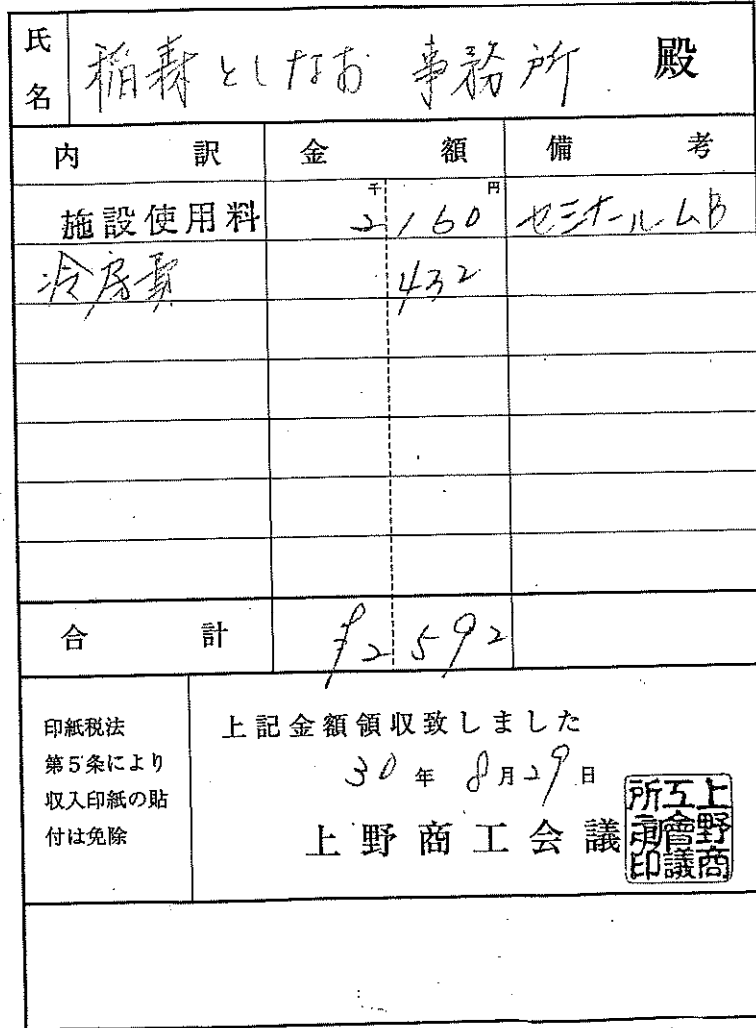 氏名 稲森としなお 事務所 殿
内訳 金額 備考
千 円
施設使用料 2160 セミナールームB
冷房費 432
合計 ¥2592
印紙税法
第5条により
収入印紙の貼
付は免除
上記金額領収致しました
30年8月29日
上野商工会議
上野商
工會議
所之印